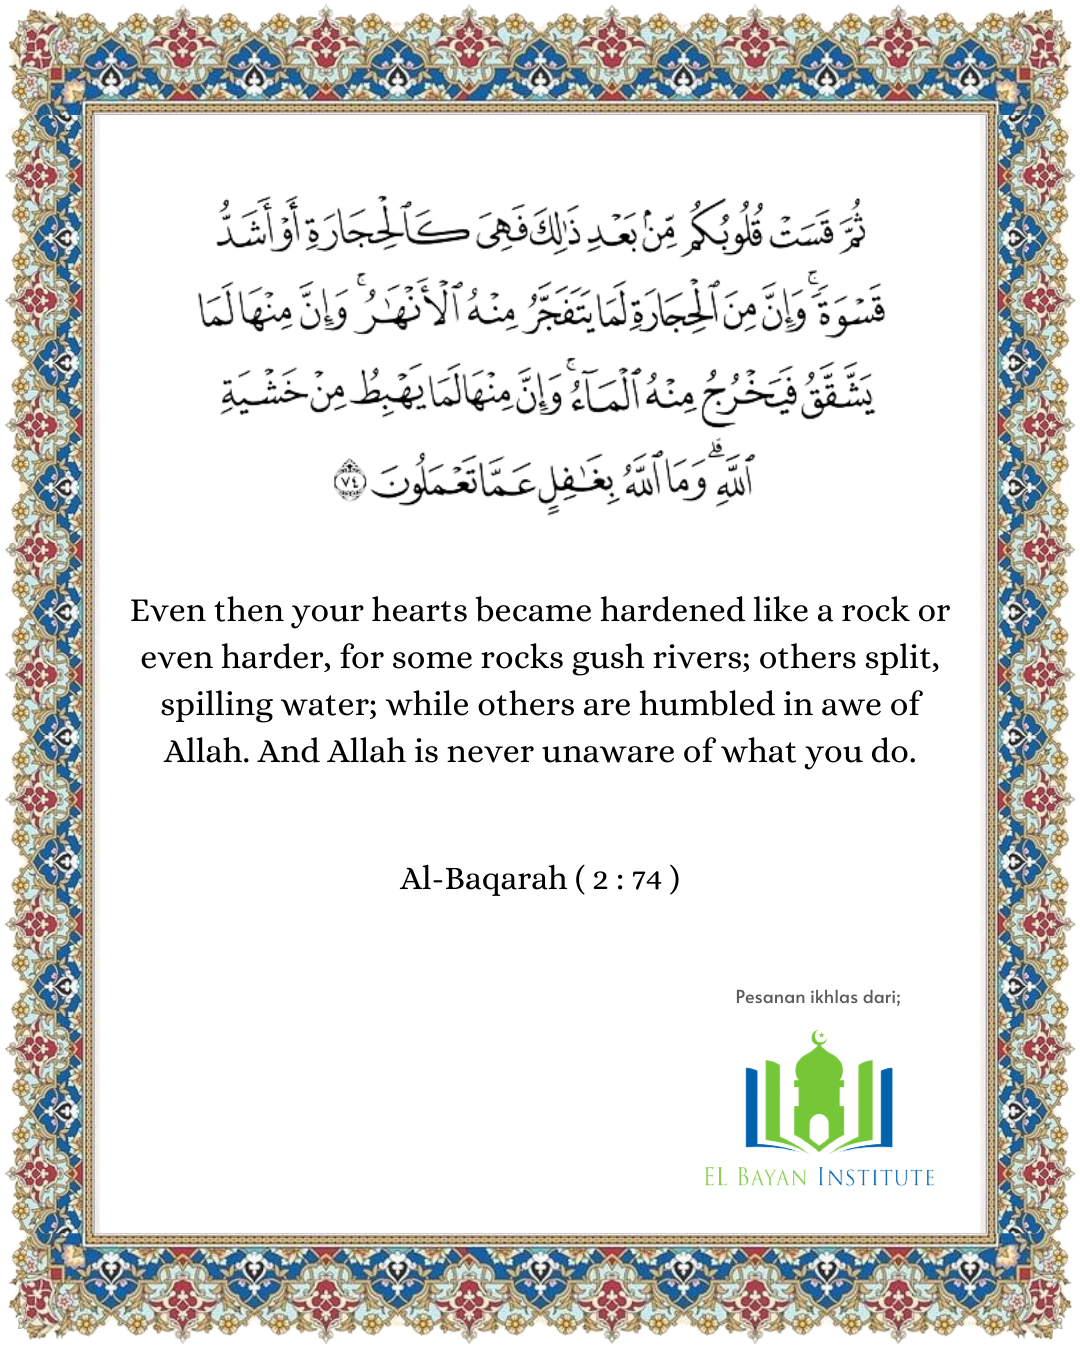 ثُمَّ قَسَتْ قُلُوبُكُم مِّنۢ بَعْدِ ذَٰلِكَ فَهِىَ كَٱلْحِجَارَةِ أَوْ أَشَدُّ
قَسْوَةً ۚ وَإِنَّ مِنَ ٱلْحِجَارَةِ لَمَا يَتَفَجَّرُ مِنْهُ ٱلْأَنْهَٰرُ ۚ وَإِنَّ مِنْهَا لَمَا
يَشَّقَّقُ فَيَخْرُجُ مِنْهُ ٱلْمَآءُ ۚ وَإِنَّ مِنْهَا لَمَا يَهْبِطُ مِنْ خَشْيَةِ
ٱللَّهِ ۗ وَمَا ٱللَّهُ بِغَٰفِلٍ عَمَّا تَعْمَلُونَ ٧٤
Even then your hearts became hardened like a rock or
even harder, for some rocks gush rivers; others split,
spilling water; while others are humbled in awe of
Allah. And Allah is never unaware of what you do.
Al-Baqarah ( 2 : 74 )
Pesanan ikhlas dari;
EL BAYAN INSTITUTE